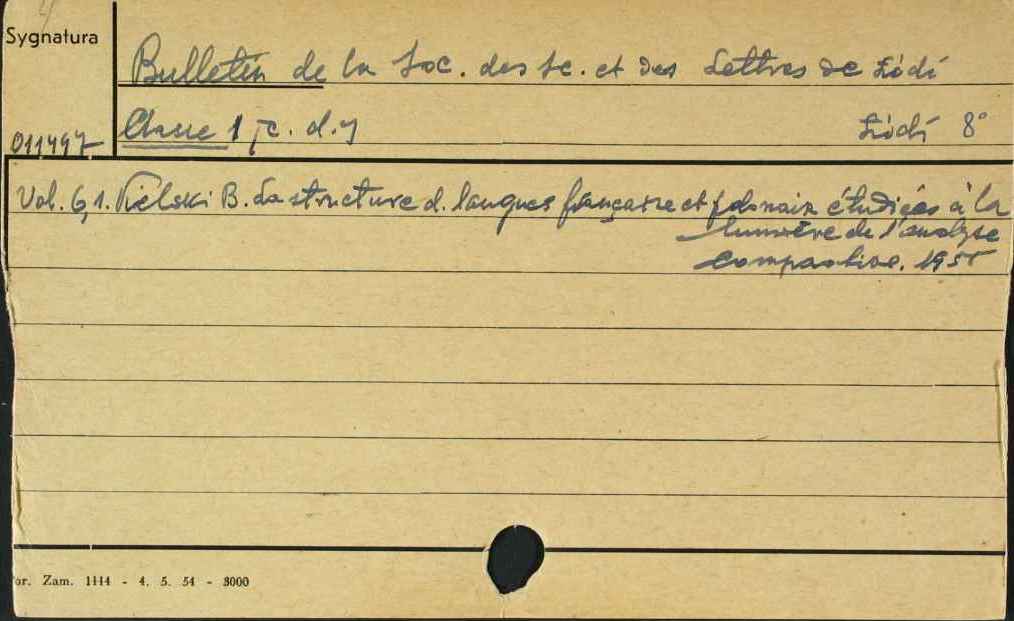 4
Sygnatura
Bulletin de la Soc. des Sc. et des Lettres de Łódź
011497 Classe 1 d. Łódź 8°
Vol. 6,1. Kielski B. La structure d. langues française et polonais étudiées à la
lumière de l'analyse
comparative. 1955
or. Zam. 1114 - 4. 5. 54 - 3000